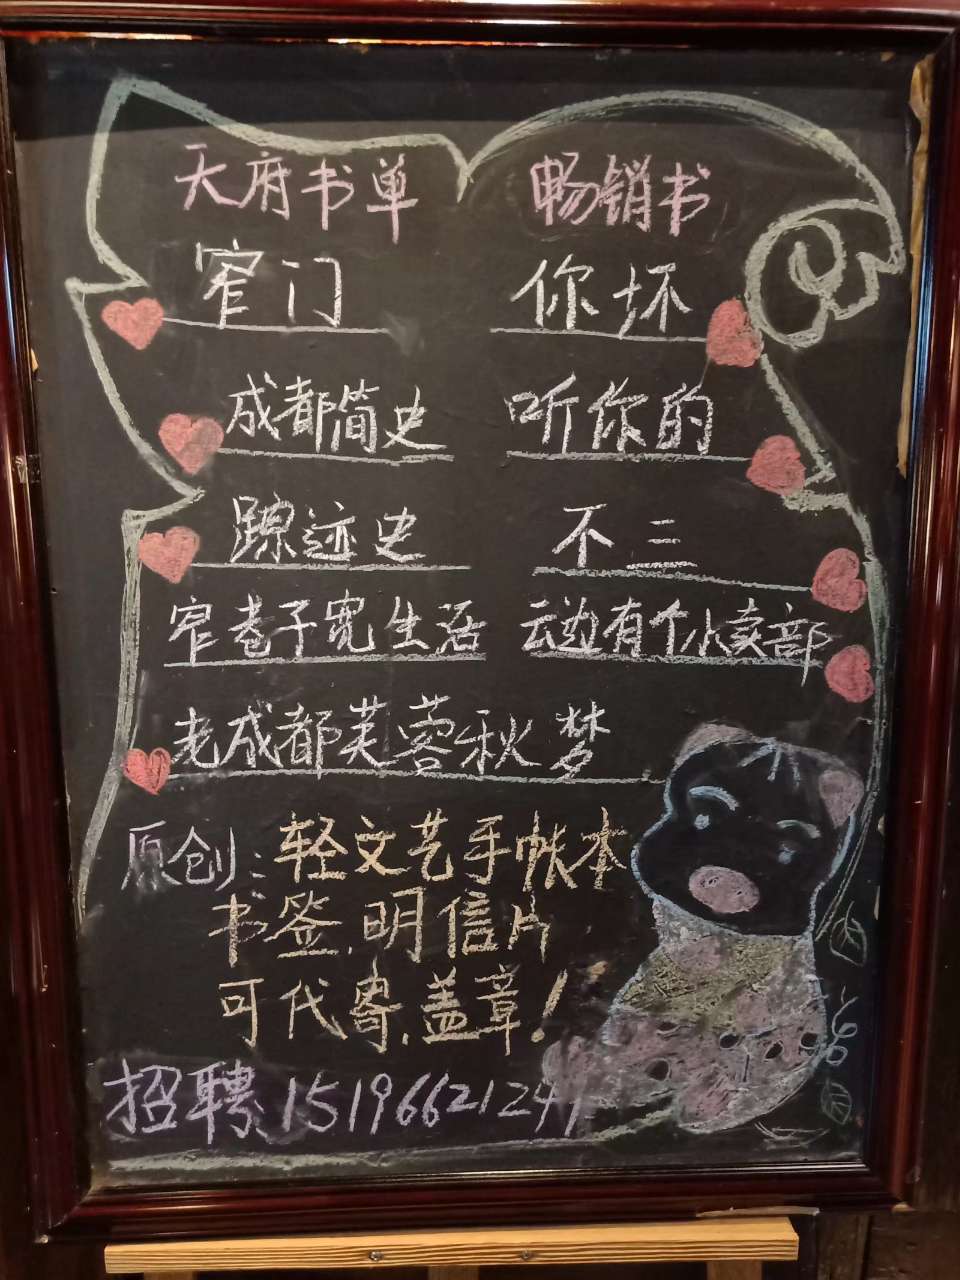 天府书单 畅销书
窄门 你坏
成都简史 听你的
踪迹史 不二
窄巷子宽生活 云边有个小卖部
老成都芙蓉秋梦
原创:轻文艺手帐本
书签,明信片
可代寄,盖章!
招聘:15196621241